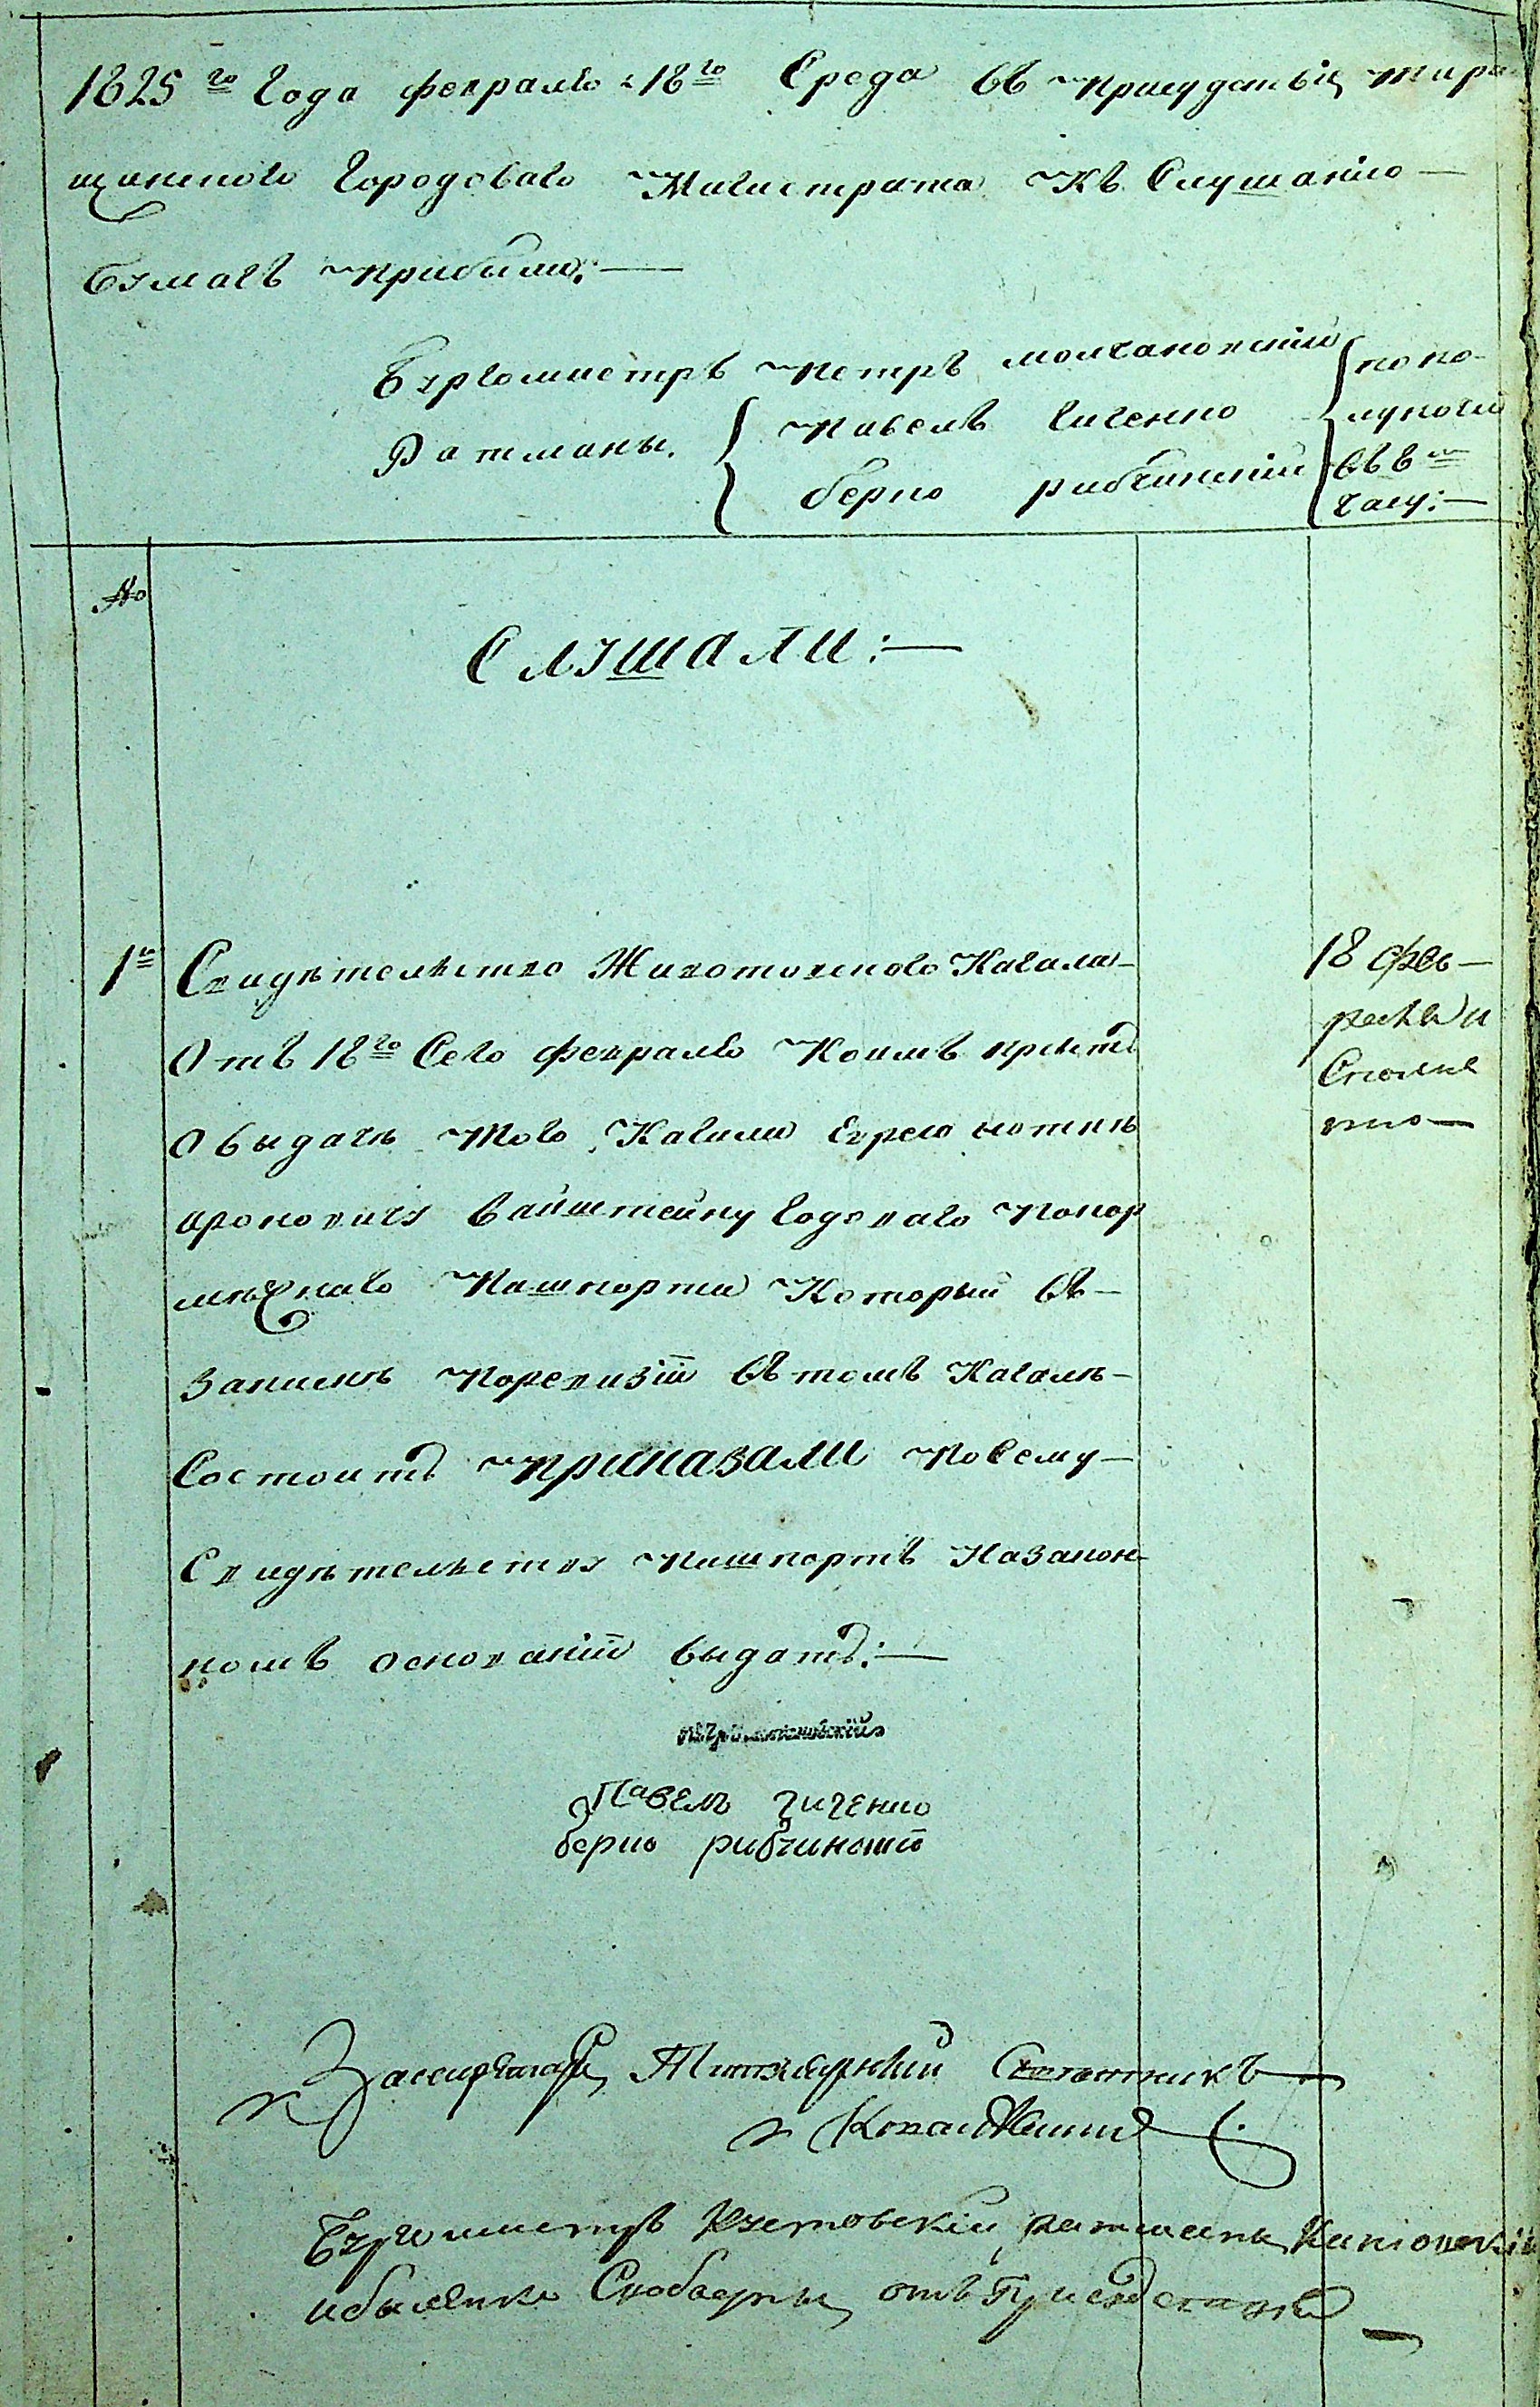 1825го Года февраля 18го Среда въ присудствіи тара
щанского Городоваго Магистрата Къ Слушанію —
бумагъ прибыли: —
Бургомистръ петръ молчановскій
Ратманы.
павелъ Гиченко
берко рибчинский
по по-
луночи
въ 8м
часу: —
№
Слушали: —
1е
Свидѣтельство Животовского Кагала —
Отъ 18го Сего февраля Коимъ
О выдачѣ того Кагала Еврею мотелѣ
ароновичу вайштейну Годоваго покор
мѣжнаго Пашпорта Который въ —
запискѣ поревизіи въ томъ Кагалѣ —
Состоитъ приказали по Сему —
Свидѣтельству пашпортъ Назакон-
номъ основаніи выдать: —
18 Фев —
раля и
Сполне
но —
петръ молчановскій
Павелъ гиченко
берко рибчинский
Засекретаря Титулярный Советникъ —
Бургомистръ ратманы
отъ